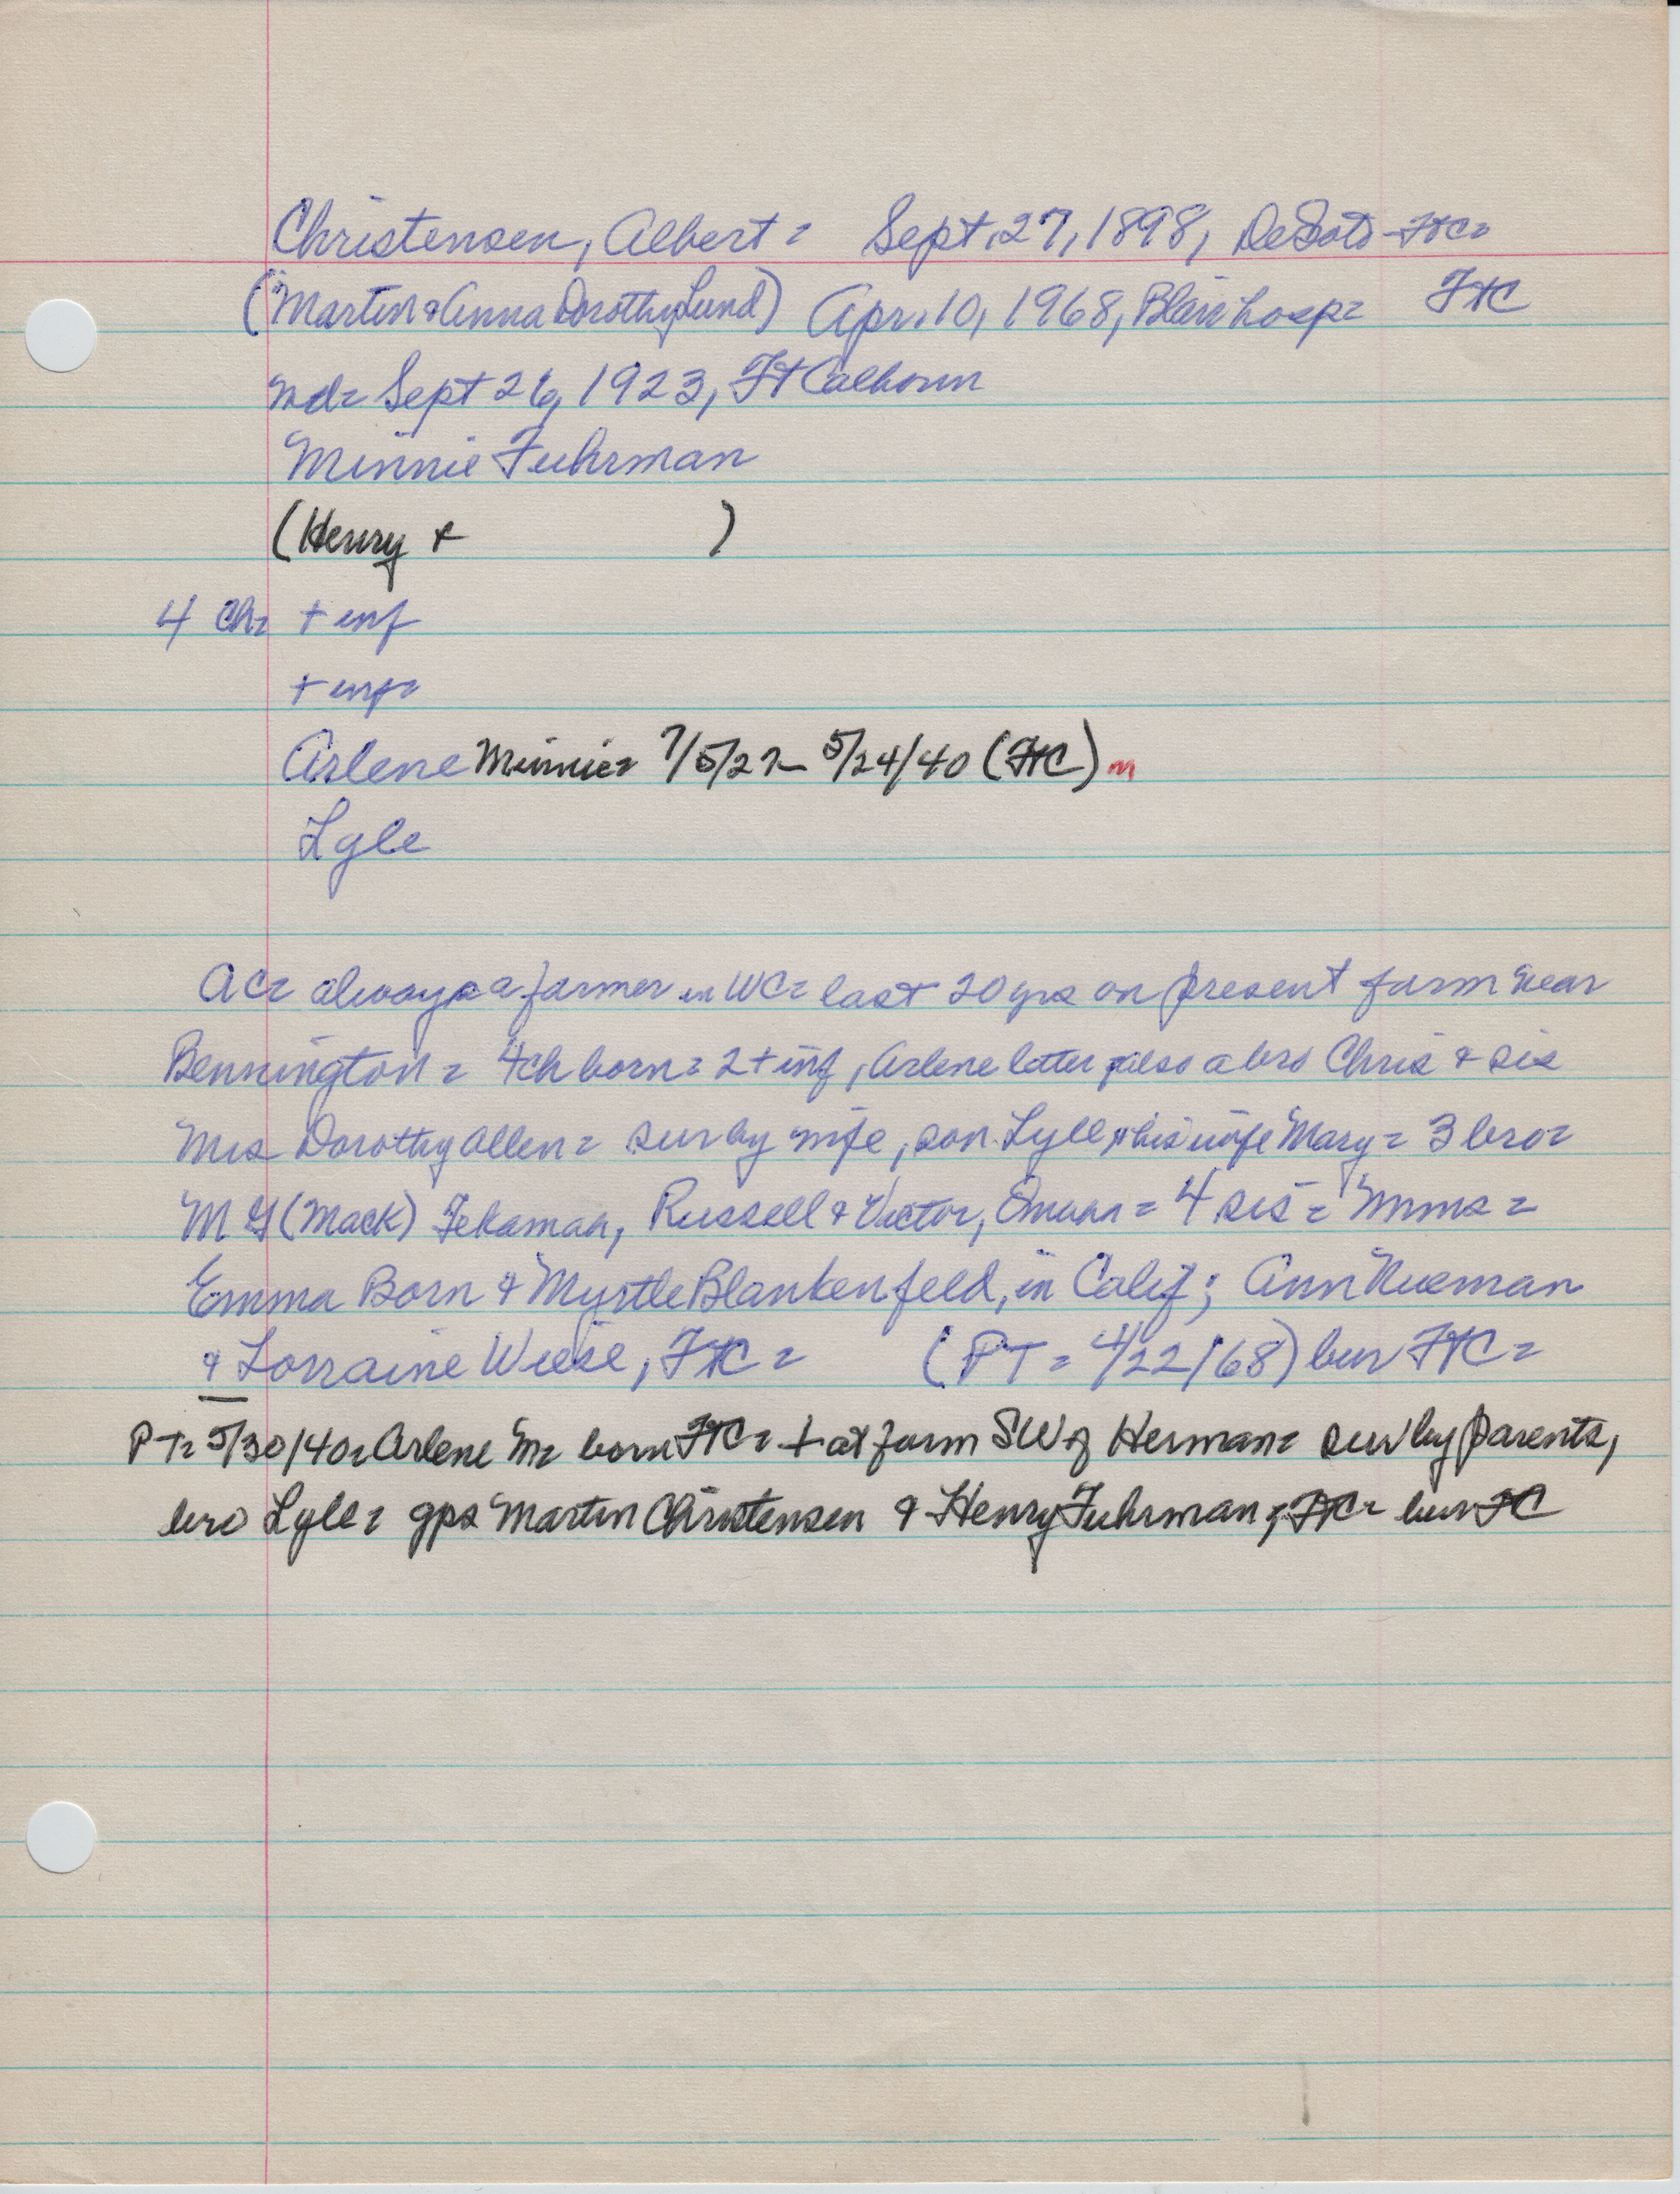 Christensen, Albert = Sept. 27, 1898, DeSoto - FtC=
(Martin & Anna Dorothy Lund) Apr. 10, 1968, Blair hosp= FtC
md= Sept 26, 1923, Ft Calhoun
Minnie Fuhrman
(Henry & )
4 Ch= + inf
+ inf=
Arlene Minnie= 7/5/27- 5/24/40 (FtC) m
Lyle
AC= always a farmer in WC= last 20 yrs on present farm near
Bennington = 4ch born= 2 + inf, Arlene later, also a bro Chris & sis
Mrs Dorothy Allen= sur by wife, son Lyle & his wife Mary = 3 bro=
M G (Mack) Tekamah, Russell & Victor, Omaha = 4 sis = Mmms =
Emma Born & Myrtle Blankenfeld, in Calif; Ann Nieman
& Lorraine Wiese, FtC = (PT = 4/22/68) bur FtC =
PT= 5/30/40= Arlene M= born FtC= + at farm SW of Herman= sur by parents,
bro Lyle= gps Martin Christensen & Henry Fuhrman, FtC= bur FC